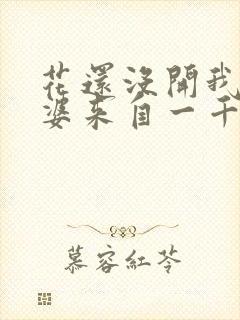 花還沒開我
婆來自一千
慕容紅苓